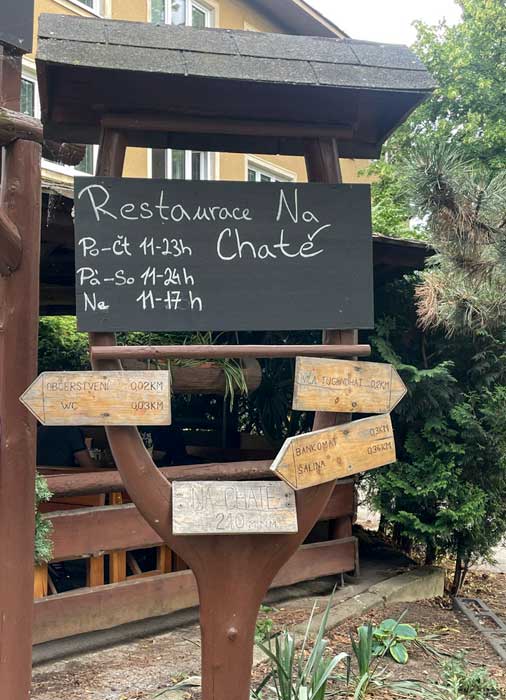 Restaurace Na
Chatě
Po-Čt 11-23h
Pá-So 11-24h
Ne 11-17h
OBČERSTVENÍ 0,02KM
WC 0,03KM
VILA TUGENDHAT 0,2KM
BANCOMAT 0,3KM
ŠALINA 0,36KM
NA CHATĚ
210 m.n.m.